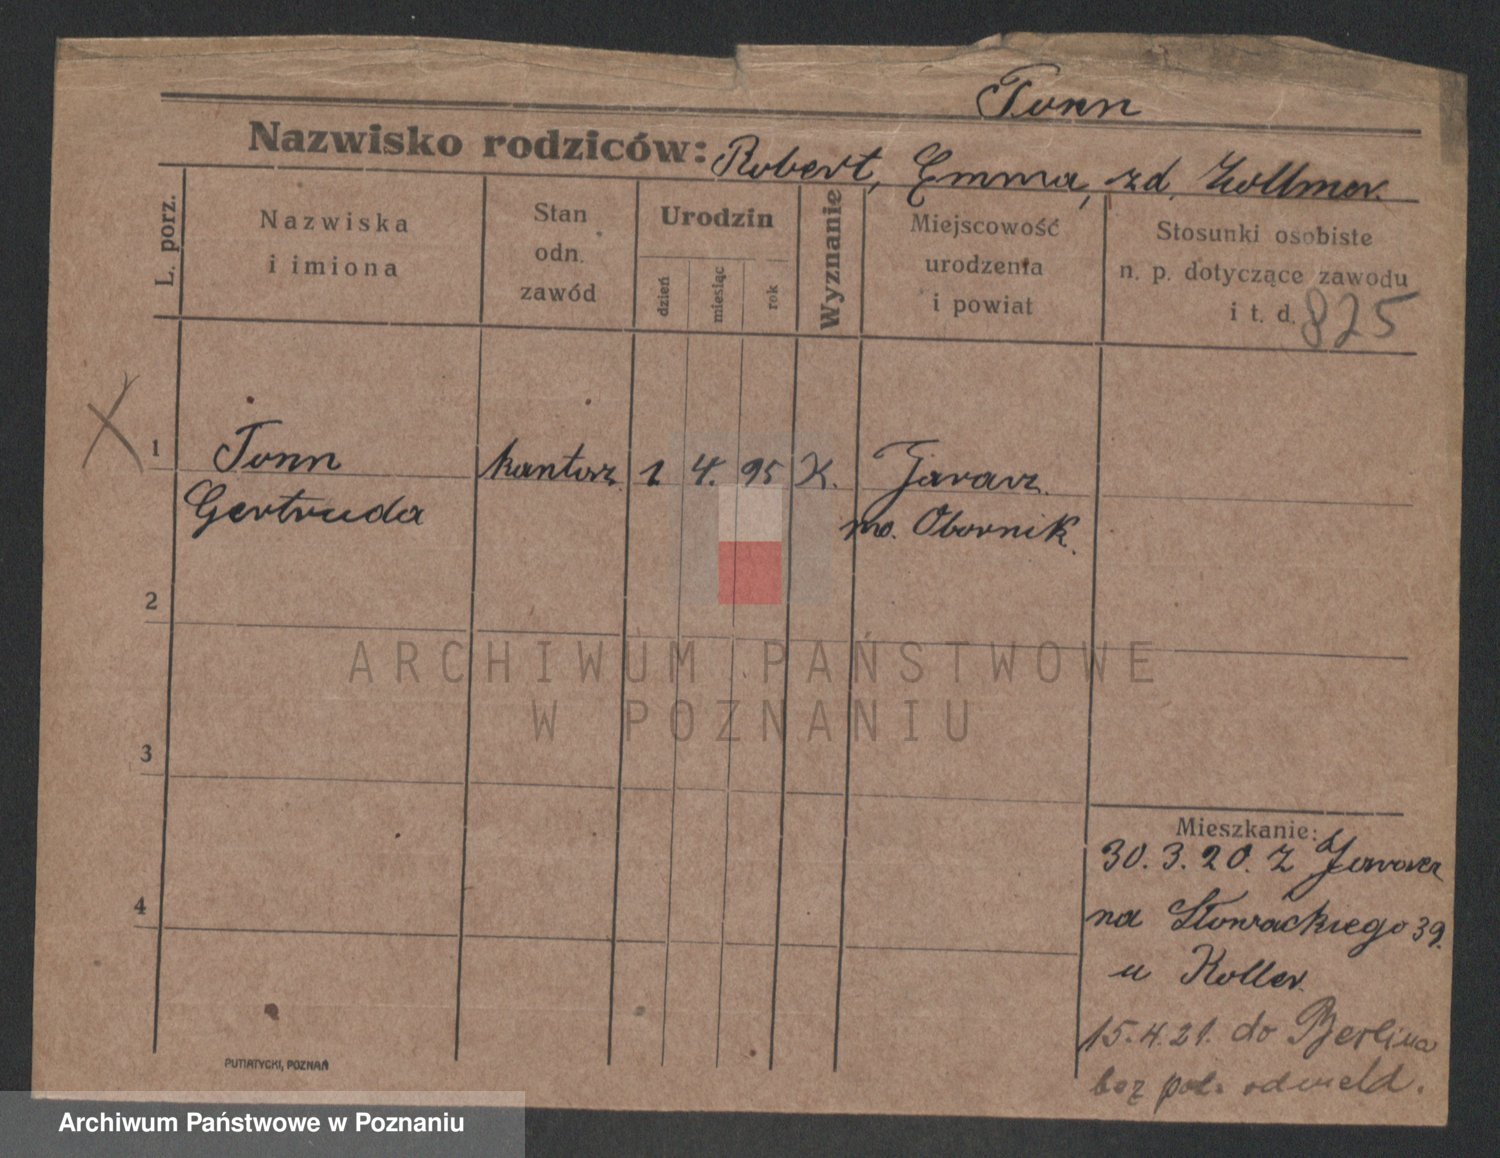 Tonn
Nazwisko rodziców: Robert, Emma, zd. Zollmer.
L. porz.
Nazwiska
i imiona
Stan
odn.
zawód
Urodzin
dzień
miesiąc
rok
Wyznanie
Miejscowość
urodzenia
i powiat
Stosunki osobiste
n. p. dotyczące zawodu
i t. d. 825
X
1 Tonn kantorz. 1 4. 95 K.
Gertruda Obornik.
2
3
4
ARCHIWUM PAŃSTWOWE
W POZNANIU
Mieszkanie:
30.3.20. z
na Słowackiego 39.
u Koller.
15.4.21. do Berlina
bez pol. odmeld.
PUTIATYCKI, POZNAŃ
Archiwum Państwowe w Poznaniu